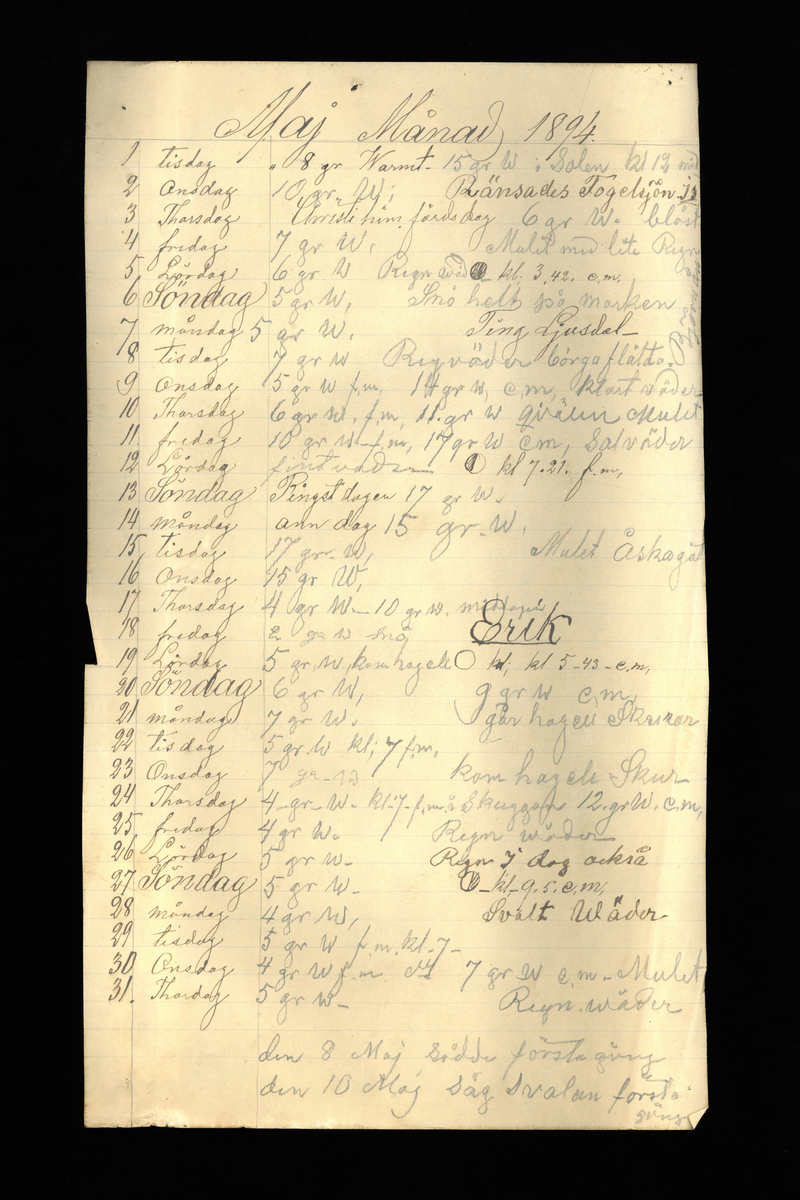 Maj Månad 1894.
1 tisdag " 8 gr Warmt - 15 gr W i Solen kl 12 mid
2 Onsdag 10 gr W; Ränsades Fogelsjön
3 Thorsdag Christi him. färdsdag 6 gr W. blåst
4 fredag 7 gr W. Mulet med lite Regn
5 Lördag 6 gr W Regn kl. 3,42. e.m.
6 Söndag 5 gr W, Snö helt på marken
7 måndag 5 gr W. Ting Ljusdal
8 tisdag 7 gr W Regväder
9 Onsdag 5 gr W f.m. 14 gr W, e,m, klart väder
10 Thorsdag 6 gr W. f,m, 11. gr W qvällen Mulet
11. fredag 10 gr W - f,m, 17 gr W em,
12 Lördag fint väder kl 7.21. f.m,
13 Söndag Pingstdagen 17 gr W.
14 måndag ann dag 15 gr W.
15, tisdag 17 gr W, Mulet Åskagåt
16 Onsdag 15 gr W,
17 Thorsdag 4 gr W. - 10 gr W. middagen
18 fredag 2 gr W snö Erik
19 Lördag 5 gr, W, kom hagele kl; kl 5-43-e,m,
20 Söndag 6 gr W, 9 gr W e,m,
21 måndag 7 gr W. går hagel Skurar
22 tisdag 5 gr W kl; 7 f,m,
23 Onsdag 7 gr W kom hagele Skur
24 Thorsdag 4 gr W. kl-7-f,m. i Skuggan 12. gr W. e,m,
25, fredag 4 gr W. Regn wäder
26 Lördag 5 gr W- Regn I dag också
27 Söndag 5 gr W- kl-9.5. e,m,
28 måndag 4 gr W, Svalt Wäder
29 tisdag 5 gr W f.m. kl-7-
30 Onsdag 4 gr W f.m 7 gr W e,m - Mulet
31. Thordag 5 gr W- Regn wäder
den 8 Maj sådde första gång
den 10 Maj såg Svalan första
gång